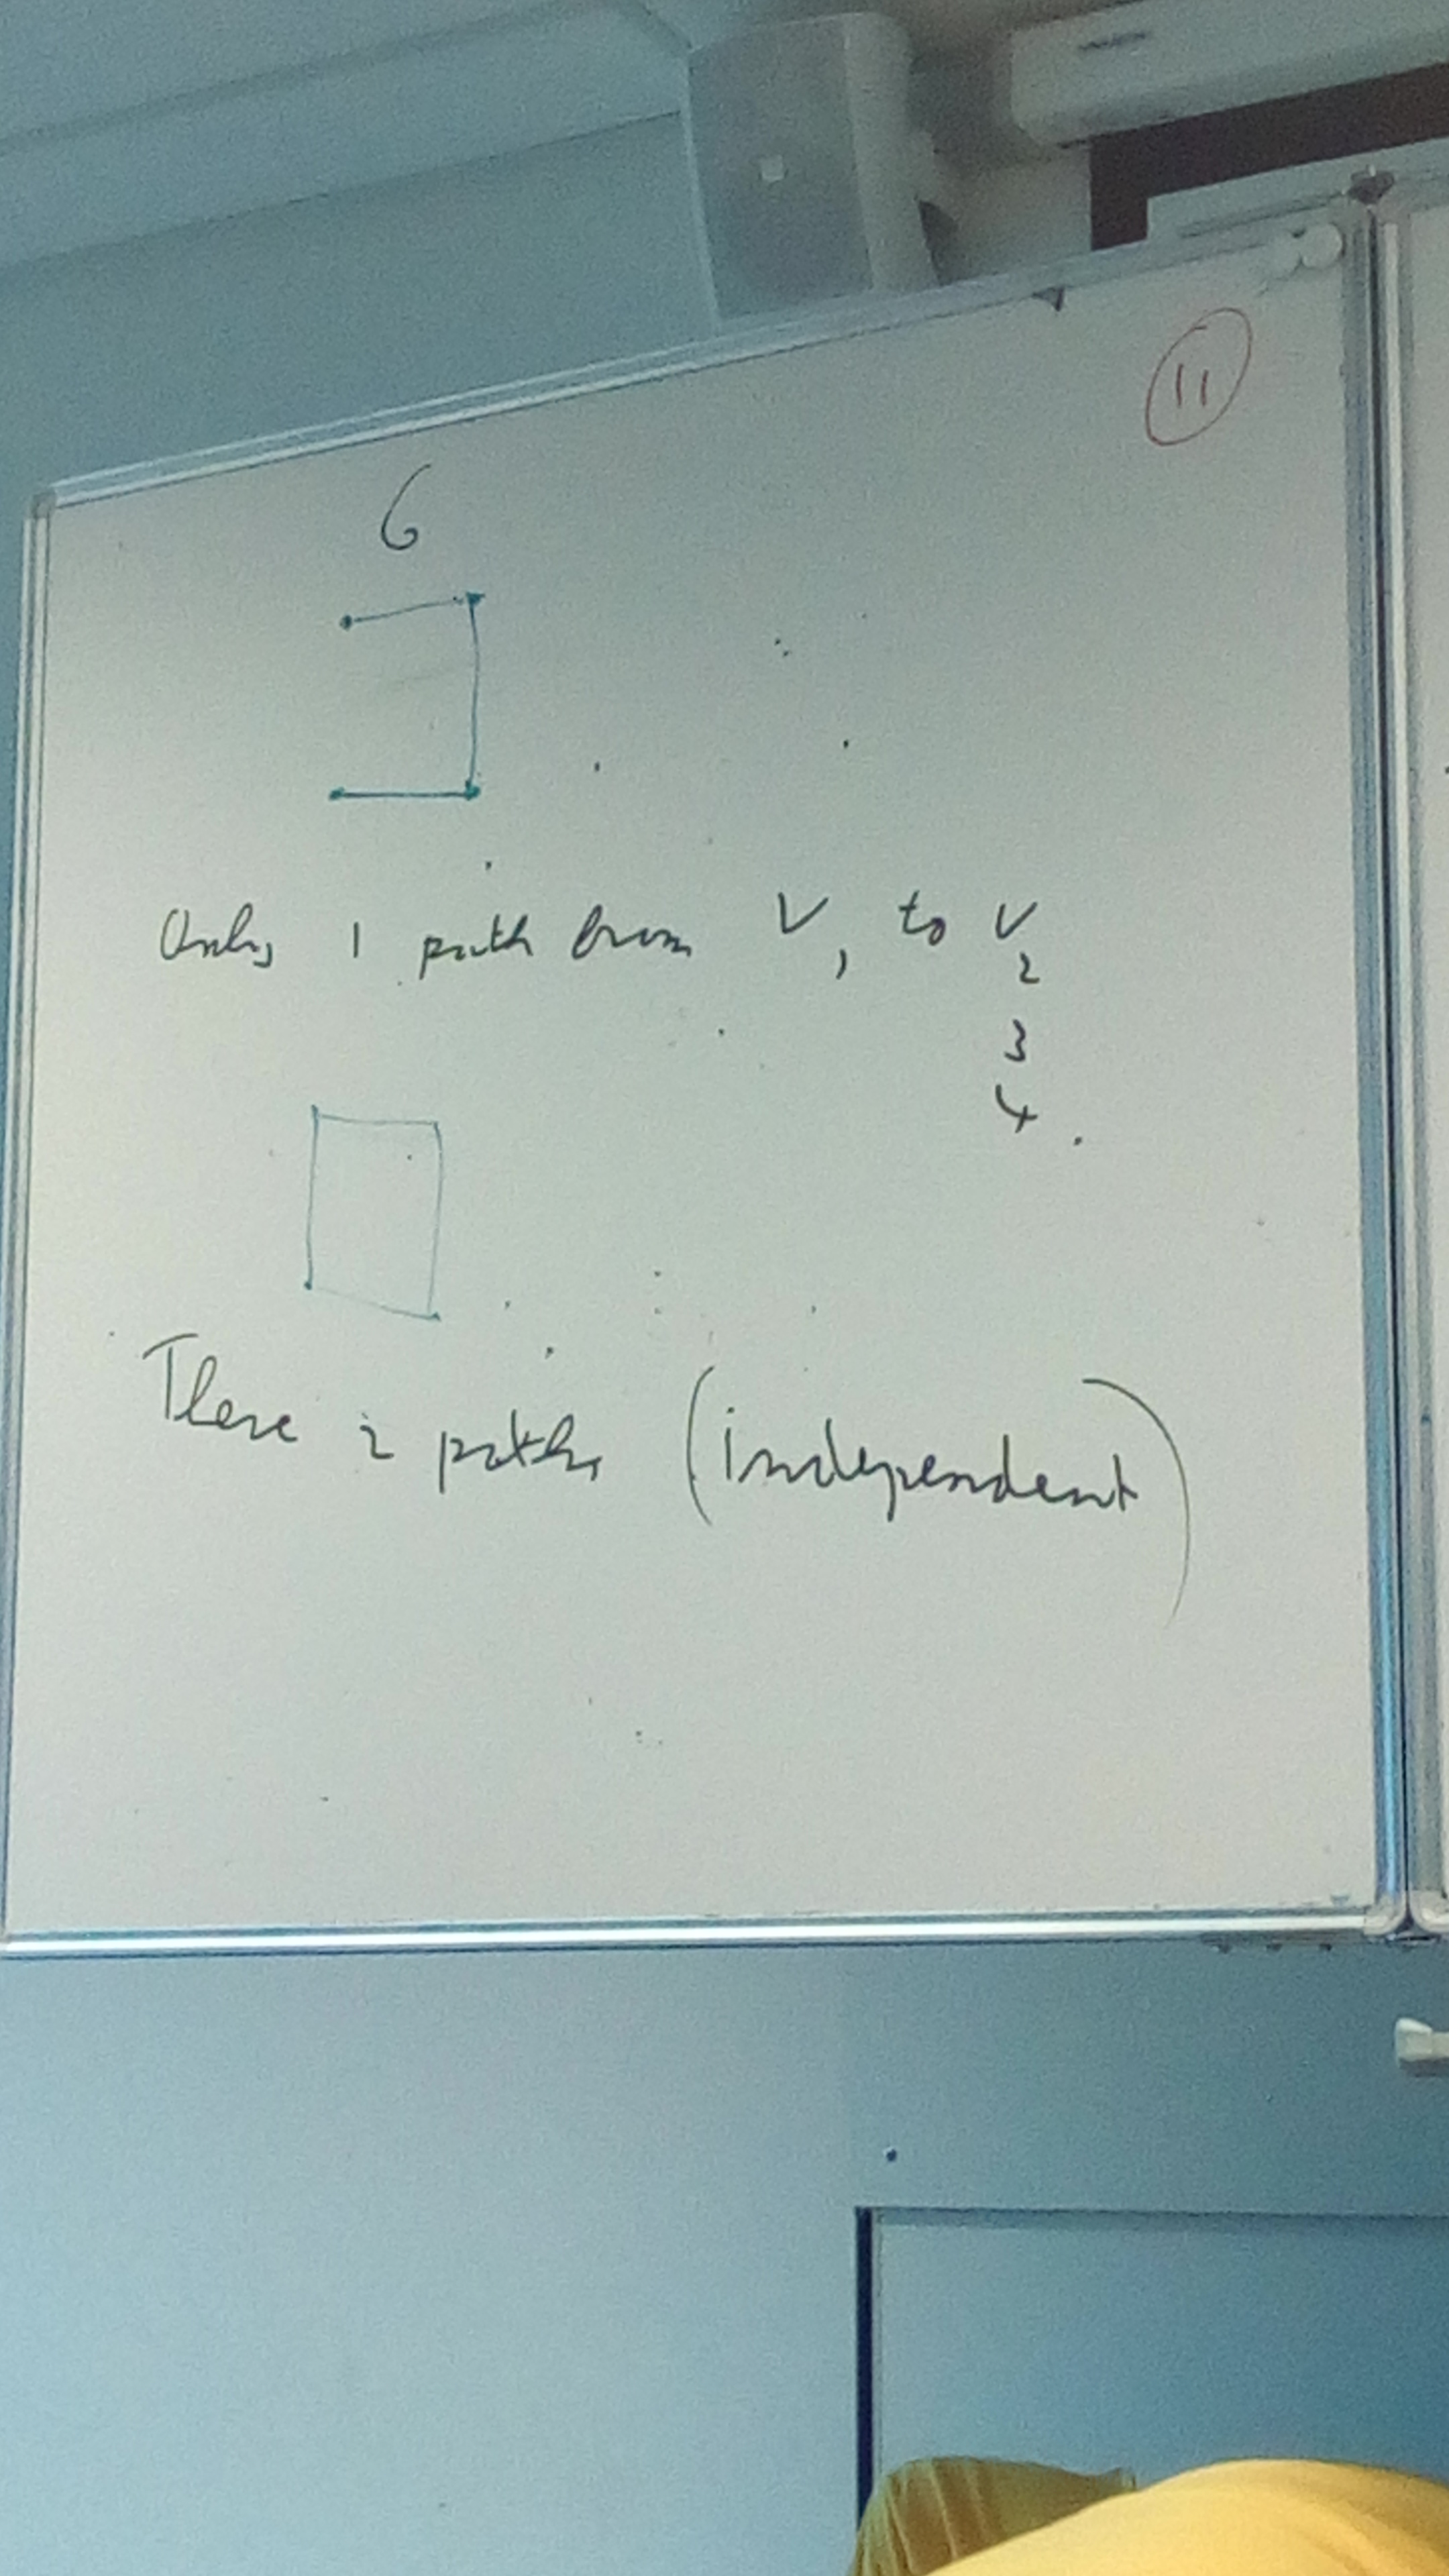 11
6
Only 1 path from V1 to V2
3
4.
There 2 paths (independent)